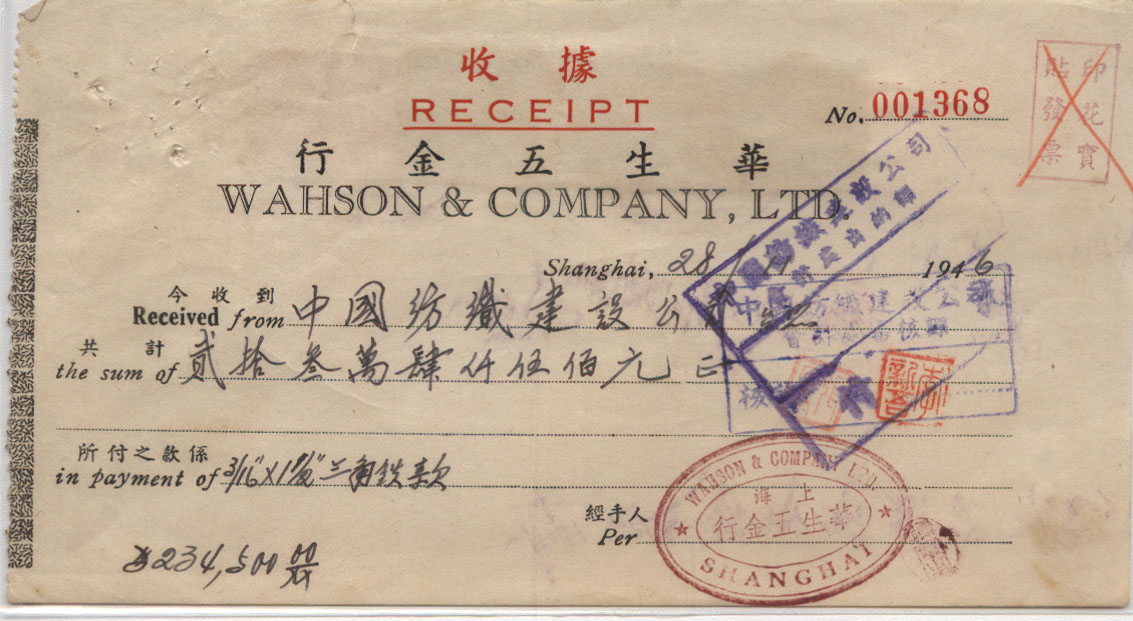 收據
RECEIPT
No. 001368
印花實
貼發票
行金五生華
WAHSON & COMPANY, LTD.
Shanghai, 28 1946
今收到
Received from 中國紡織建設公司
共計
the sum of 貳拾叁萬肆仟伍佰元正
所付之款係
in payment of 3/16" X 1 三角鉄款
經手人
Per
234,500 00
WAHSON & COMPANY LTD.
上海
行金五生華
SHANGHAI
中國紡織建設公司
中國紡織建設公司